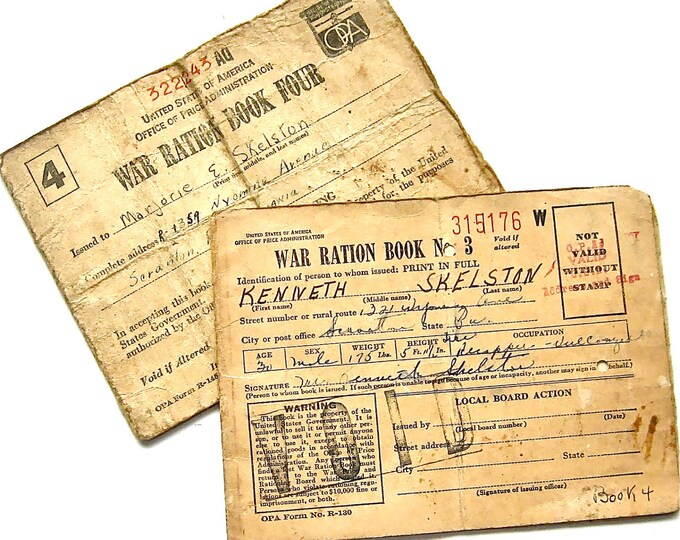 322243 AQ
OPA
UNITED STATES OF AMERICA
OFFICE OF PRICE ADMINISTRATION
4
WAR RATION BOOK FOUR
Issued to Marjorie E. Skelston
(Print first, middle, and last names)
Complete address R-1359 Wyoming Avenue
Scranton,
In accepting this book
property of the United
States Government.
for, the purposes
authorized by the Office
Void if Altered
OPA Form R-145
315176 W
UNITED STATES OF AMERICA
OFFICE OF PRICE ADMINISTRATION
Void if
altered
WAR RATION BOOK No. 3
NOT
VALID
WITHOUT
STAMP
O.P.A.
VALID
Identification of person to whom issued: PRINT IN FULL
KENNETH SKELSTON
(First name) (Middle name) (Last name)
Street number or rural route 1321 Wyoming
City or post office Scranton State Pa.
AGE SEX WEIGHT HEIGHT OCCUPATION
30 male 175 Lbs. 5 Ft. In.
SIGNATURE Kenneth Skelston
(Person to whom book is issued. If such person is unable to sign because of age or incapacity, another may sign in behalf.)
WARNING
This book is the property of the
United States Government. It is
unlawful to sell it to any other per-
son, or to use it or permit anyone
else to use it, except to obtain
rationed goods in accordance with
regulations of the Office of Price
Administration. Any person who
finds a lost War Ration Book must
return it to the War Price and
Rationing Board which issued it.
Persons who violate rationing regu-
lations are subject to $10,000 fine or
imprisonment, or both.
VOID
LOCAL BOARD ACTION
Issued by
(Local board number) (Date)
Street address
City State
(Signature of issuing officer)
OPA Form No. R-130
BOOK 4